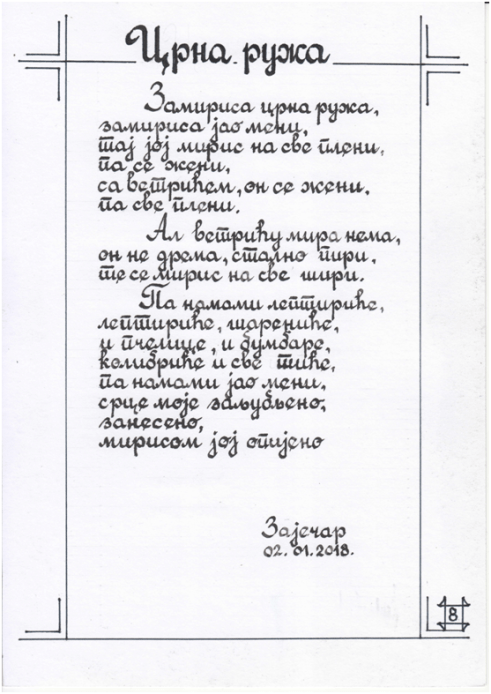 Црна ружа
Замириса црна ружа,
замириса јао мени,
тај јој мирис на све плени,
па се жени,
са ветрићем, он се жени,
па све плени.
Ал ветрићу мира нема,
он не дрема, стално пири,
те се мирис на све шири.
Па намами лептириће,
лептириће, шарениће,
и пчелице, и бумбаре,
колибриће и све тиће,
па намами јао мени,
срце моје заљубљено;
занесено,
мирисом јој опијено
Зајечар
02. 01. 2018.
8